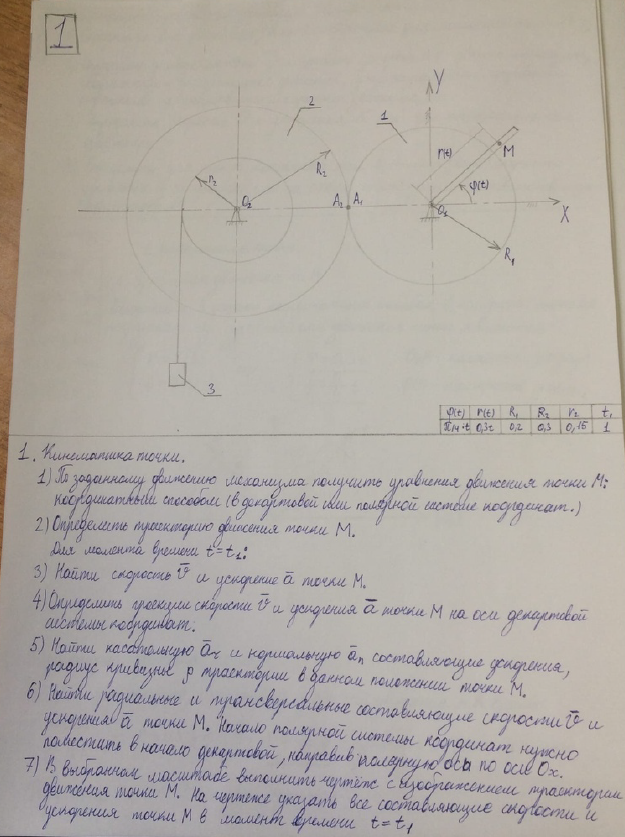 1
2
1
Y
r(t)
M
φ(t)
r₂
R₂
O₂
A₂ A₁
O₁
X
R₁
3
φ(t) r(t) R₁ R₂ r₂ t₁
π/4·t 0,3t 0,2 0,3 0,15 1
1. Кинематика точки.
1) По заданному движению механизма получить уравнения движения точки M:
координатным способом (в декартовой или полярной системе координат.)
2) Определить траекторию движения точки M.
Для момента времени t=t₁:
3) Найти скорость v̄ и ускорение ā точки M.
4) Определить проекции скорости v̄ и ускорения ā точки M на оси декартовой
системы координат.
5) Найти касательную ā𝜏 и нормальную āₙ составляющие ускорения,
радиус кривизны ρ траектории в данном положении точки M.
6) Найти радиальные и трансверсальные составляющие скорости v̄ и
ускорения ā точки M. Начало полярной системы координат нужно
поместить в начало декартовой, направив полярную ось по оси Ox.
7) В выбранном масштабе выполнить чертёж с изображением траектории
движения точки M. На чертеже указать все составляющие скорости и
ускорения точки M в момент времени t=t₁